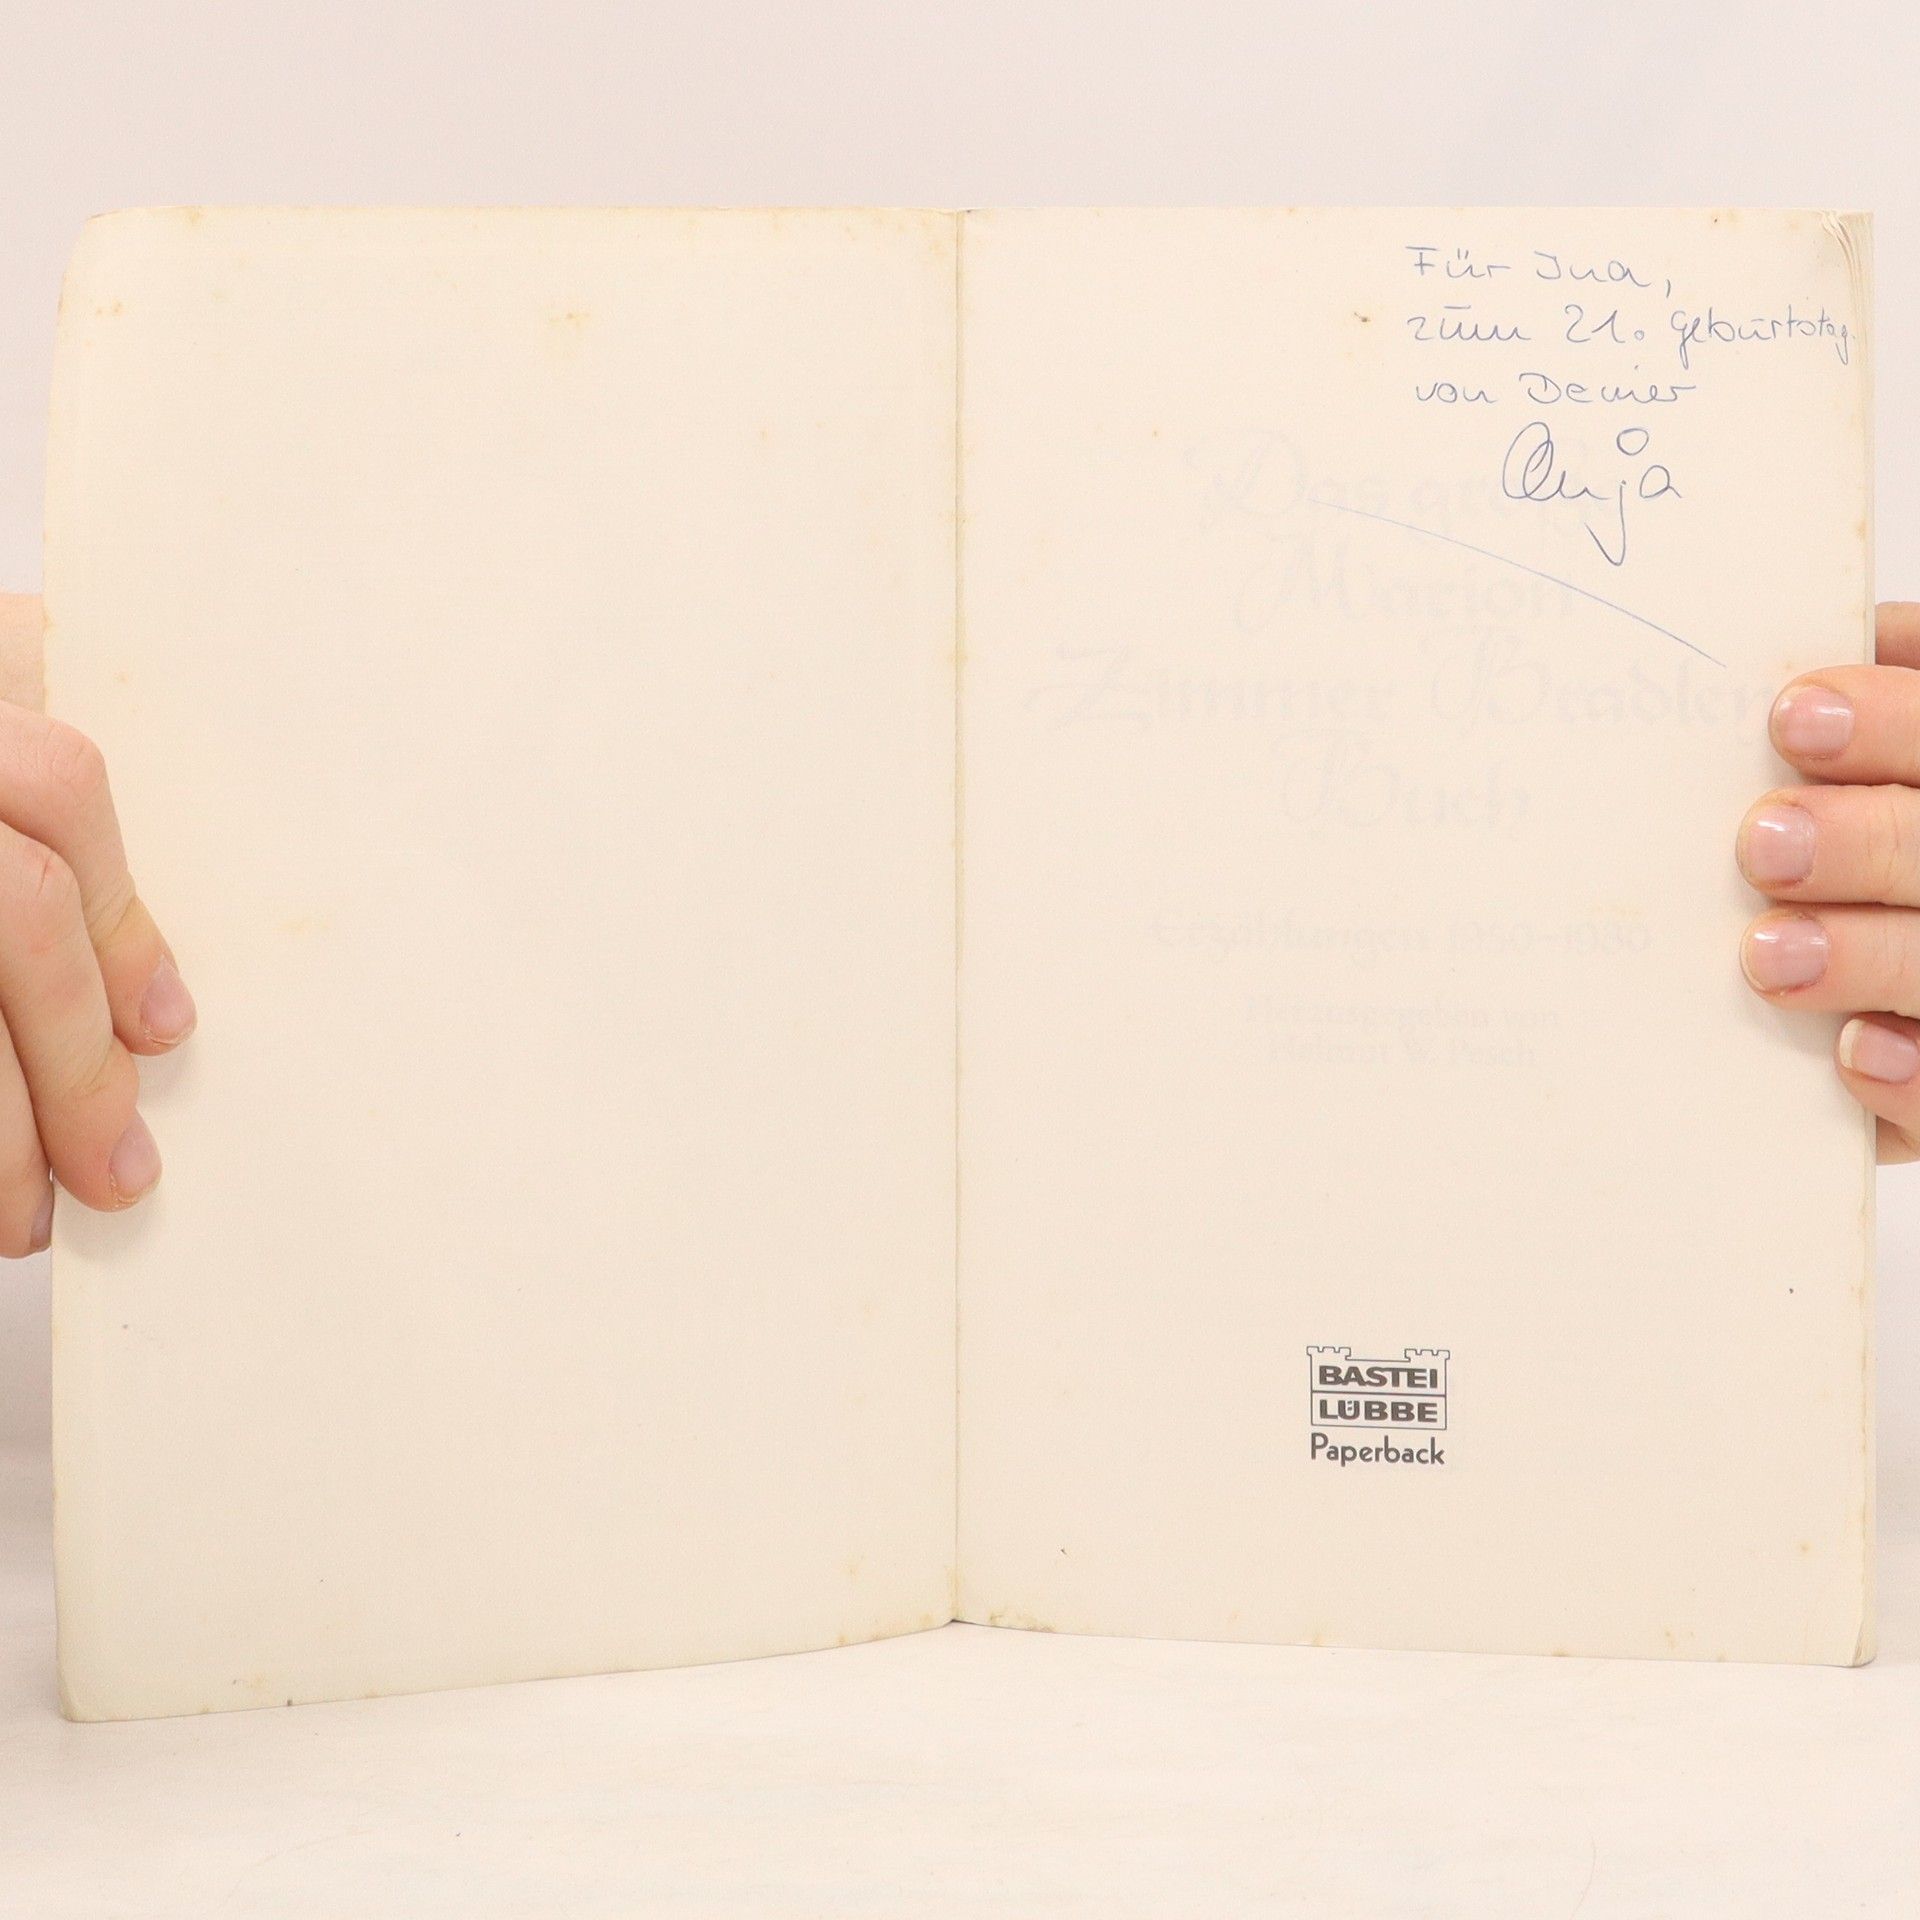 Für Ina,
zum 21. Geburtstag
von Deiner
Anja
Das große
Marion
Zimmer Bradley
Buch
Erzählungen
Herausgegeben von
Helmut W. Pesch
BASTEI
LÜBBE
Paperback